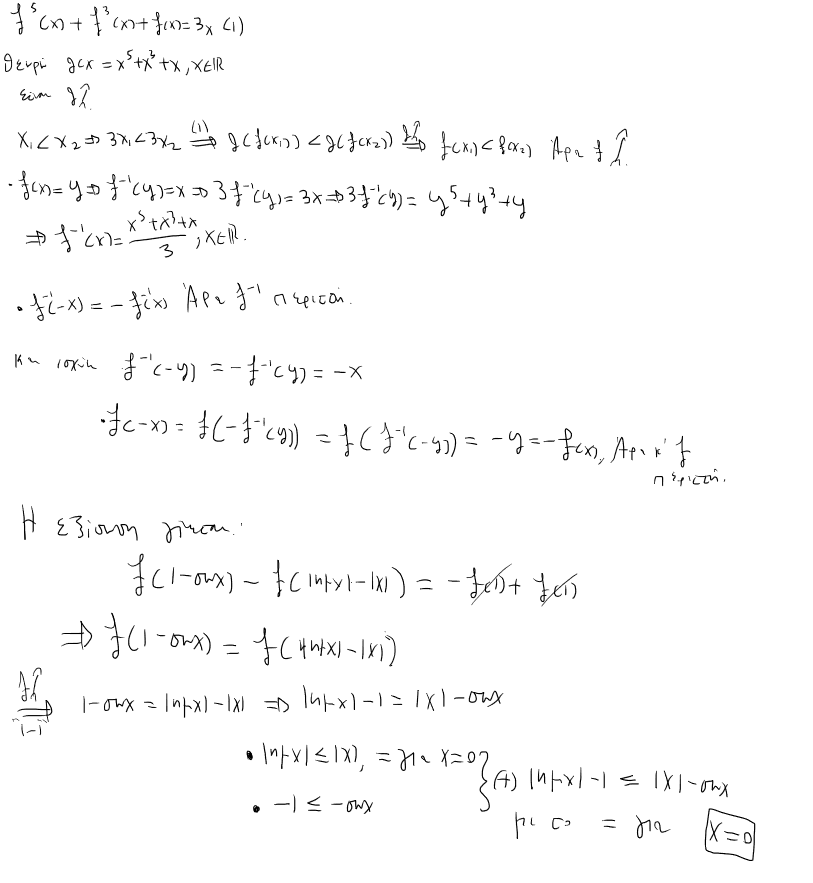 f⁵(x) + f³(x) + f(x) = 3x (1)
Θεωρώ g(x = x⁵+x³+x, x∈ℝ
είναι g↑
x₁<x₂ ⇒ 3x₁<3x₂ ⇒(1) g(f(x₁)) < g(f(x₂)) ⇒(g↑) f(x₁)<f(x₂) Άρα f ↑
· f(x)=y ⇒ f⁻¹(y)=x ⇒ 3f⁻¹(y)=3x ⇒ 3f⁻¹(y) = y⁵+y³+y
⇒ f⁻¹(x) = (x⁵+x³+x)/3, x∈ℝ.
· f⁻¹(-x) = -f⁻¹(x) Άρα f⁻¹ περιττή.
και ισχύει f⁻¹(-y) = -f⁻¹(y) = -x
· f(-x) = f(-f⁻¹(y)) = f(f⁻¹(-y)) = -y = -f(x), Άρα κ' f
περιττή.
Η εξίσωση γίνεται:
f(1-συνx) - f(|ημx|-|x|) = -f(1) + f(1)
⇒ f(1-συνx) = f(|ημx|-|x|)
⇒(f↑, "1-1") 1-συνx = |ημx|-|x| ⇒ |ημx|-1 = |x|-συνx
• |ημx| ≤ |x|, = για x=0
• -1 ≤ -συνx } (+) |ημx|-1 ≤ |x|-συνx
με το = για x=0